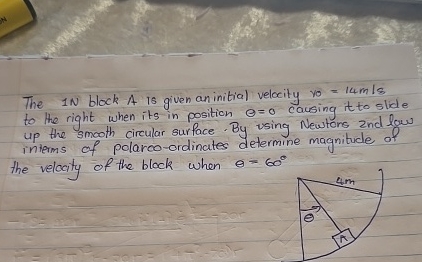 The 1N block A is given an initial velocity vo = 14m/s
to the right when its in position θ=0 causing it to slide
up the smooth circular surface. By using Newtons 2nd law
interms of polarco-ordinates determine magnitude of
the velocity of the block when θ = 60°
4m
θ
A